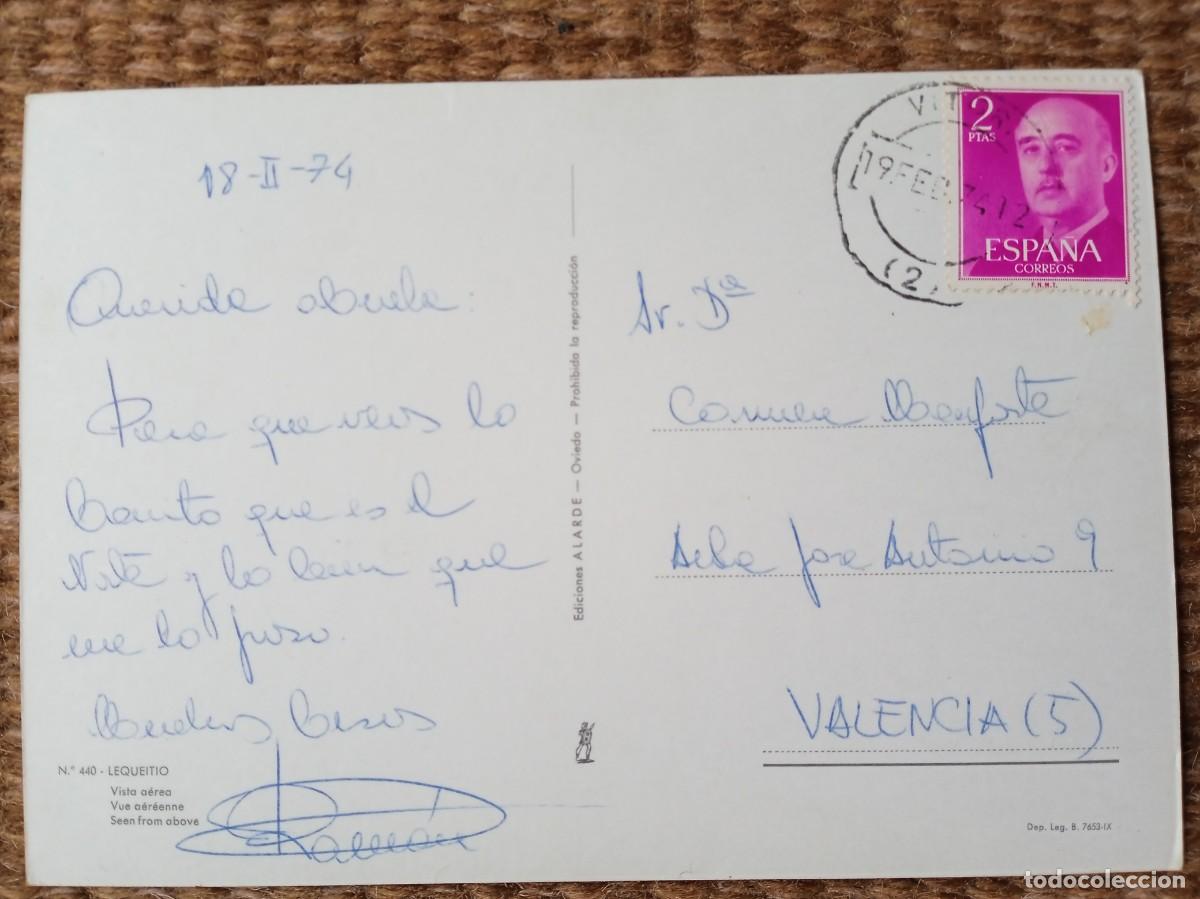 18-II-74
Querida abuela:
Para que veas lo
bonito que es el
Norte y lo bien que
me lo paso.
Muchos besos
Ramón
N.º 440 - LEQUEITIO
Vista aérea
Vue aéreenne
Seen from above
Ediciones ALARDE — Oviedo — Prohibida la reproducción
19 FEB. 74 12
(2)
2
PTAS
ESPAÑA
CORREOS
F.N.M.T.
Sr. Dª
Carmen Monforte
José Antonio 9
VALENCIA (5)
Dep. Leg. B. 7653-IX
todocoleccion